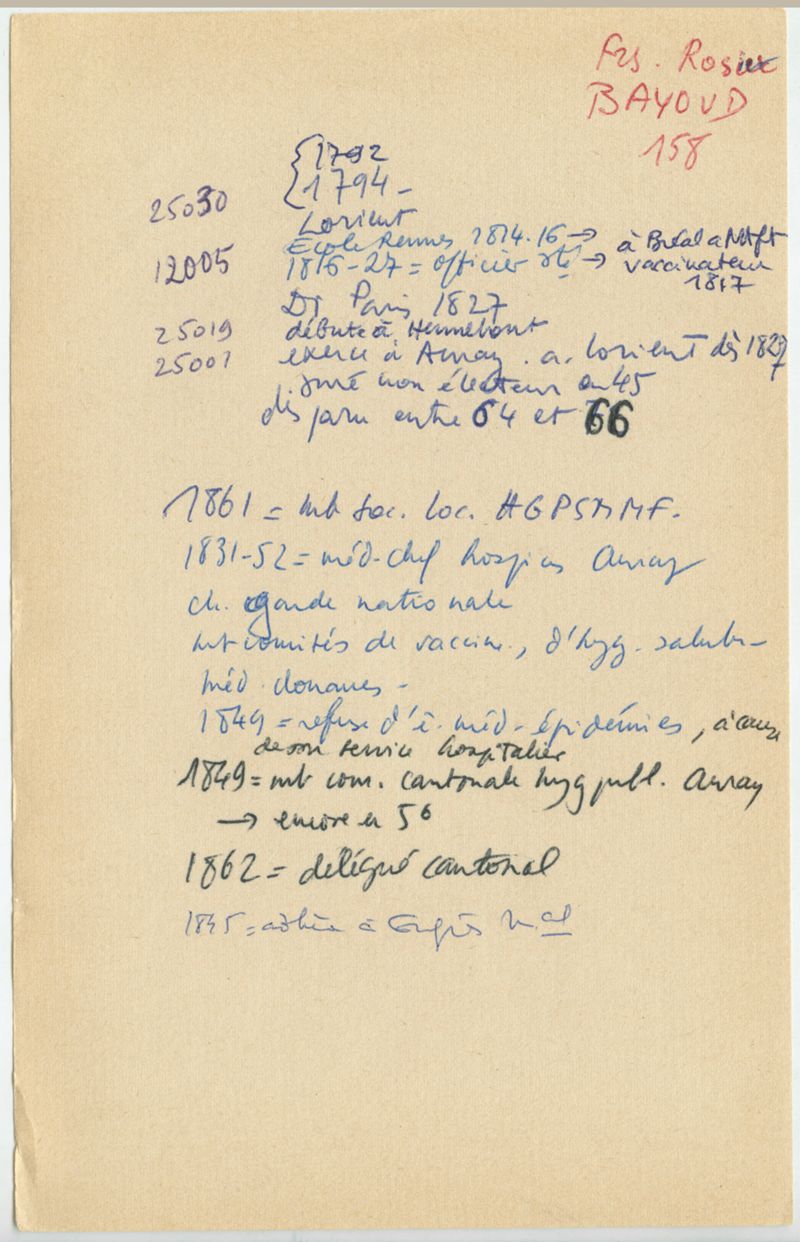 Frs. Rosier
BAYOUD
158
{1792
{1794 -
25030
Lorient
Ecole Rennes 1814.16 → à Bréal a Mtft
12005 1816-27 = officier sté → vaccinateur
1817
Dr Paris 1827
25019 débute à Hennebont
25001 exerce à Auray. a. Lorient dès 1827
juré non électeur en 45
disparu entre 64 et 66
1861 = mb soc. loc. AGPSMMF.
1831-52 = méd-chef hospices Auray
ch. garde nationale
mb comités de vaccine, d'hyg. salub-
méd. douanes -
1849 = refuse d'ê. méd-épidémies, à cause
de son service hospitalier
1849 = mb com. cantonale hyg publ. Auray
→ encore en 56
1862 = délégué cantonal
1845 = adhère à Congrès Mcal